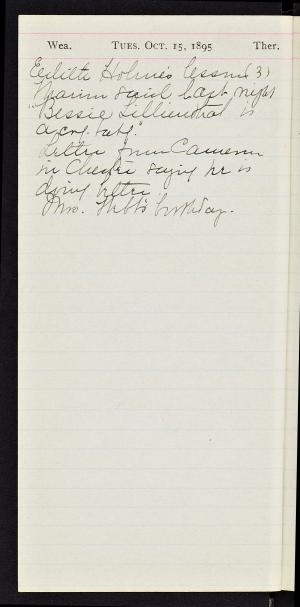 Wea. TUES. OCT. 15, 1895 Ther.
Edith Holmes lesson (3)
Marion said last night
"Bessie Lillienthal is
a cry baby."
Letter from Cameron
in Cheshire saying he is
doing better.
Mrs. birthday.